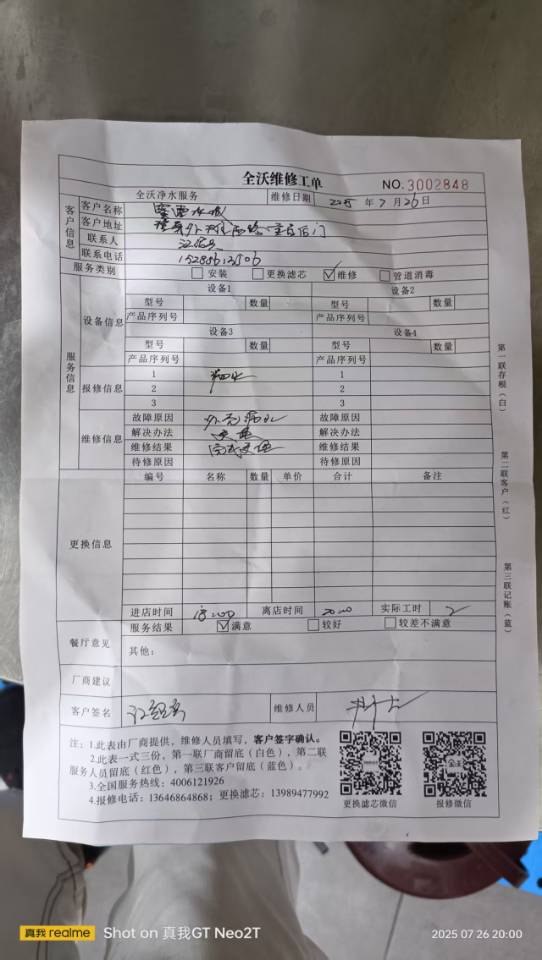 全沃维修工单
NO.3002848
全沃净水服务 维修日期 2025年7月26日
客户信息
客户名称
客户地址
联系人
联系电话
服务类别 安装 更换滤芯 ✓维修 管道消毒
服务信息
设备信息
设备1 设备2
型号 数量 型号 数量
产品序列号 产品序列号
设备3 设备4
型号 数量 型号 数量
产品序列号 产品序列号
报修信息
1 漏水 1
2 2
3 3
维修信息
故障原因 外壳漏水 故障原因
解决办法 更换 解决办法
维修结果 维修结果
待修原因 待修原因
更换信息
编号 名称 数量 单价 合计 备注
进店时间 18:00 离店时间 20:00 实际工时 2
服务结果 ✓满意 较好 较差不满意
餐厅意见 其他：
厂商建议
客户签名 维修人员
注：1.此表由厂商提供，维修人员填写，客户签字确认。
2.此表一式三份，第一联厂商留底（白色），第二联
服务人员留底（红色），第三联客户留底（蓝色）。
3.全国服务热线：4006121926
4.报修电话：13646864868；更换滤芯：13989477992
更换滤芯微信 报修微信
第一联存根（白）
第二联客户（红）
第三联记账（蓝）
真我 realme Shot on 真我GT Neo2T
2025 07 26 20:00